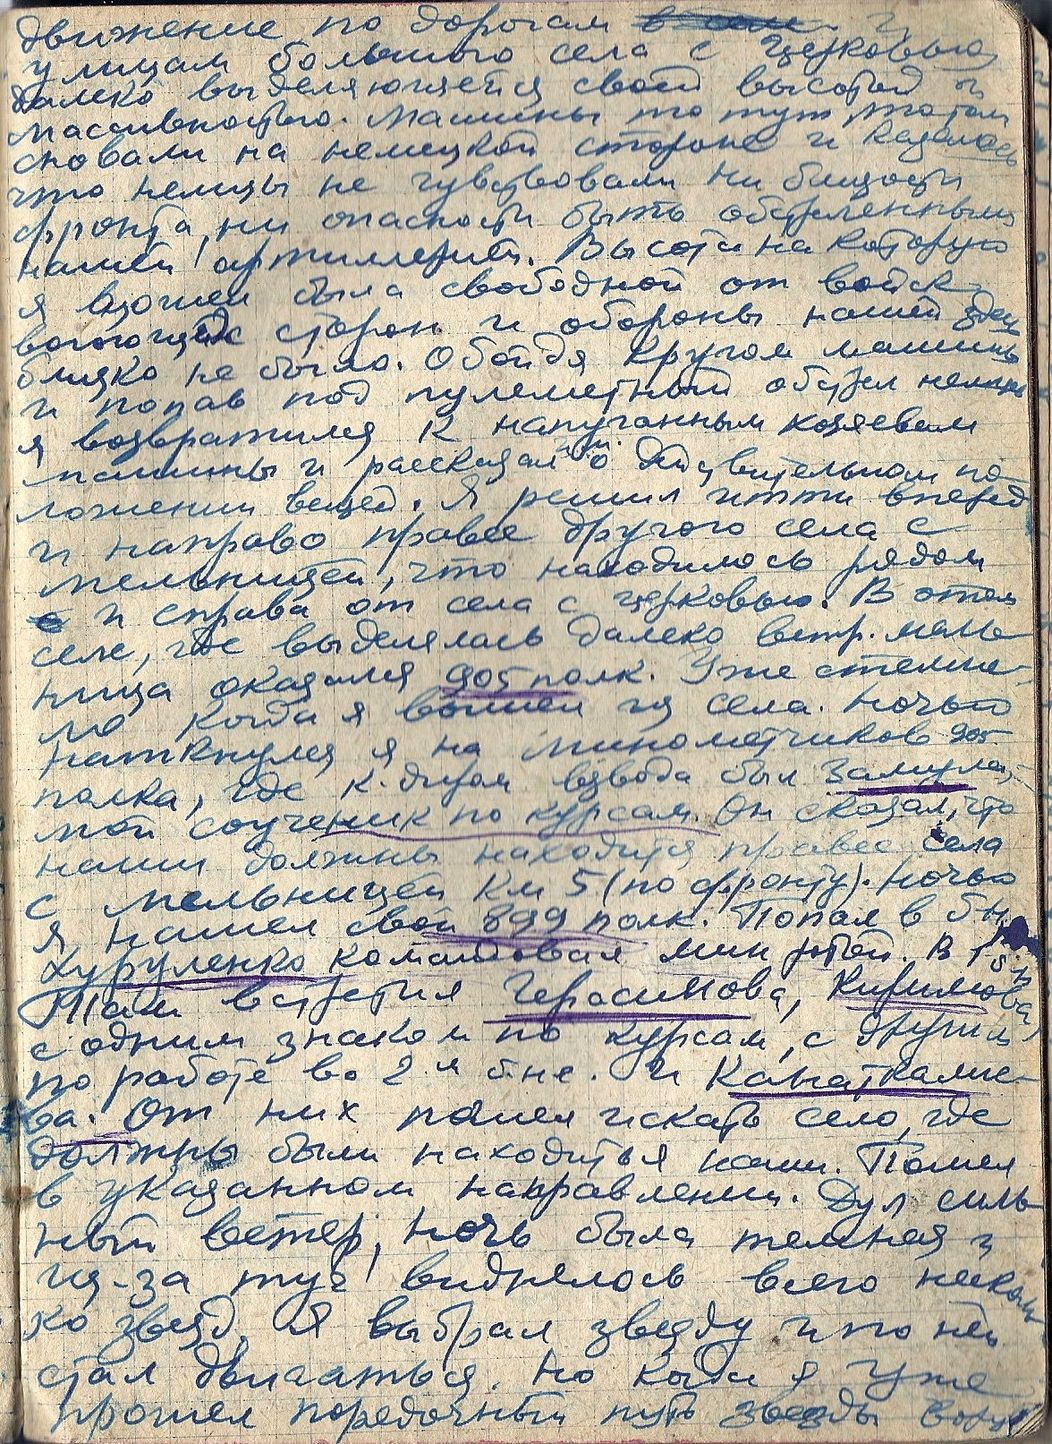 движение по дорогам и
улицам большого села с церковью
далеко выделяющейся своей высотой и
массивностью. Машины то тут то там
сновали на немецкой стороне и казалось
что немцы не чувствовали ни близости
фронта, ни опасности быть обстреленными
нашей артиллерией. Высота на которую
я взошел была свободной от войск
воюющих сторон и обороны нашей здесь
близко не было. Обойдя кругом машины
и попав под пулеметный обстрел немцев
я возвратился к напуганным хозяевам
машины и рассказал им о действительном по-
ложении вещей. Я решил итти вперед
и направо правее другого села с
мельницей, что находилось рядом
и справа от села с церковью. В этом
селе, где выделялась далеко ветр. мель-
ница оказался 905 полк. Уже стемне-
ло когда я вышел из села. Ночью
наткнулся я на минометчиков 905
полка, где к-диром взвода был
мой соученик по курсам. Он сказал, что
наши должны находится правее села
с мельницей км 5 (по фронту). Ночью
я нашел свой 899 полк. Попал в б-н
Хуруленко командовал мин ротой. В 1 б-н
Там встретил Герасимова, Киримова
с одним знаком по курсам, с другим
по работе во 2-й б-не. и Канаткалие-
ва. От них пошел искать село, где
должны были находиться наши. Пошел
в указанном направлении. Дул силь-
ный ветер, ночь была темная и
из-за туч виднелось всего несколь-
ко звезд. Я выбрал звезду и по ней
стал двигаться. Но когда я уже
прошел порядочный путь звезды вдруг